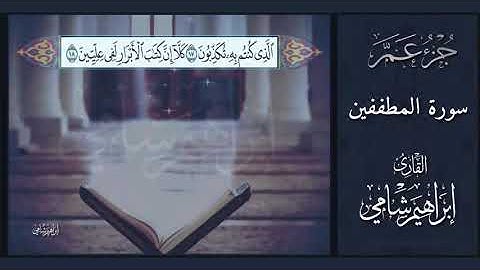 الَّذِى كُنتُم بِهِۦ تُكَذِّبُونَ ١٧ كَلَّآ إِنَّ كِتَـٰبَ الْأَبْرَارِ لَفِى عِلِّيِّينَ ١٨
جُزْءُ عَمَّ
سورة المطففين
القَارِئ
إبراهيم شامي
إبراهيم شامي